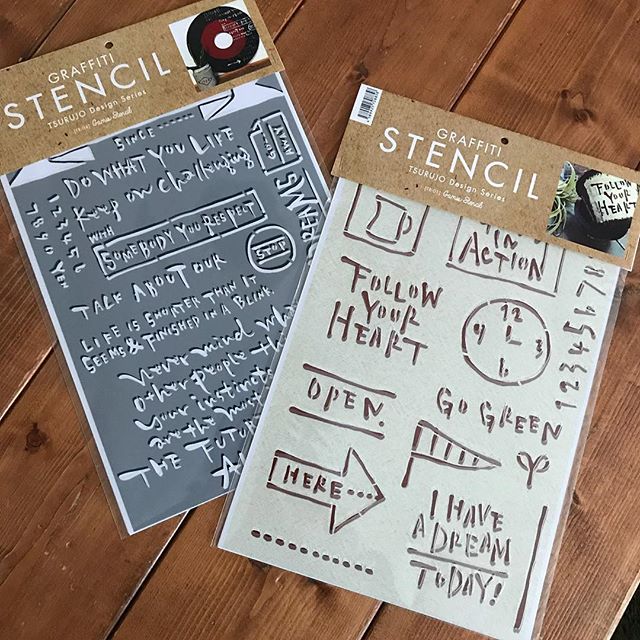 GRAFFITI
STENCIL
TSURUJO Design Series
SINCE
DO WHAT YOU LIKE
Keep on Challenging
WITH
SOMEBODY YOU RESPECT
STOP
TALK ABOUT OUR
LIFE IS SHORTER THAN IT
SEEMS & FINISHED IN A BLINK
Never mind wha
Other people thi
your instinct
are the most
THE FUTUR
1 2 3 4 5 6
7 8 9 0
GRAFFITI
STENCIL
TSURUJO Design Series
FOLLOW
YOUR
HEART
IN
ACTION
FOLLOW
YOUR
HEART
12
9 3
6
1 2 3 4 5 6 7 8
OPEN.
GO GREEN
HERE
I HAVE
A DREAM
TODAY!